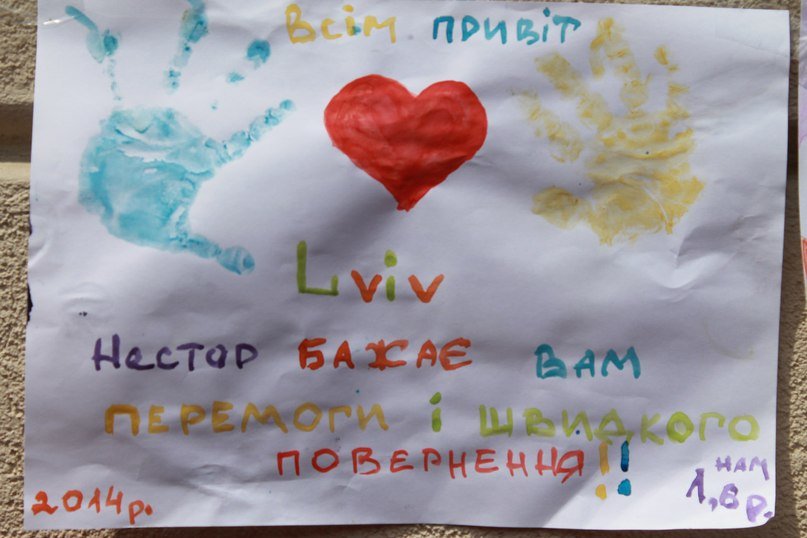 Всім привіт
Lviv
Нестор БАЖАЄ ВАМ
ПЕРЕМОГИ і ШВИДКОГО
ПОВЕРНЕННЯ!!
2014р.
НАМ
1,6 р.